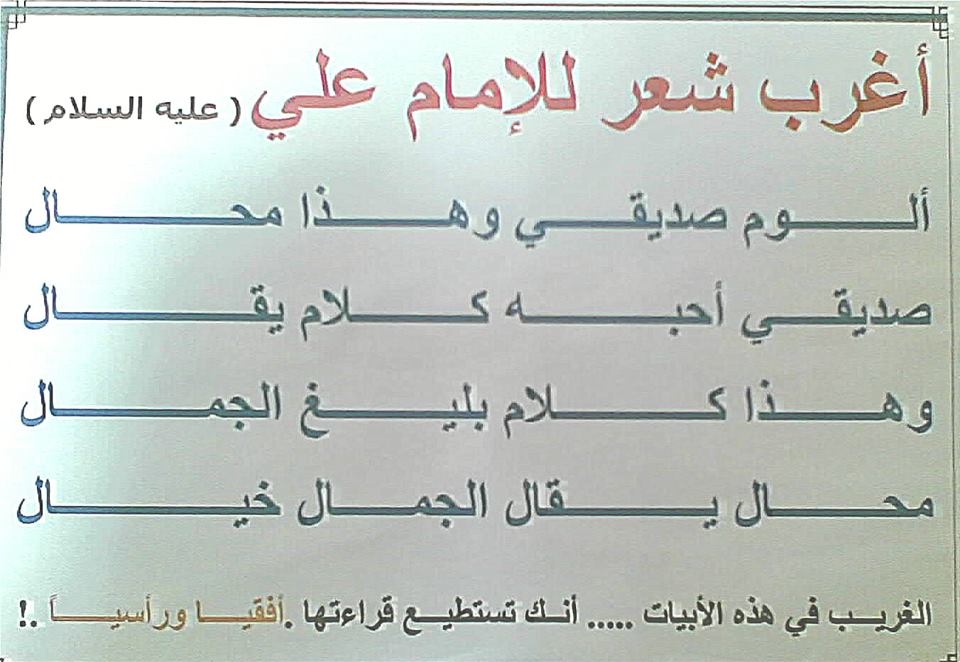 أغرب شعر للإمام علي ( عليه السلام )
ألـــوم صديقـــي وهـــذا محـــال
صديقـــي أحبـــه كـــلام يقـــال
وهـــذا كـــلام بليـــغ الجمـــال
محـــال يـــقال الجمـــال خيـــال
الغريـب في هذه الأبيات ..... أنـك تستطيـع قراءتها .أفقيـا ورأسيـاً .!